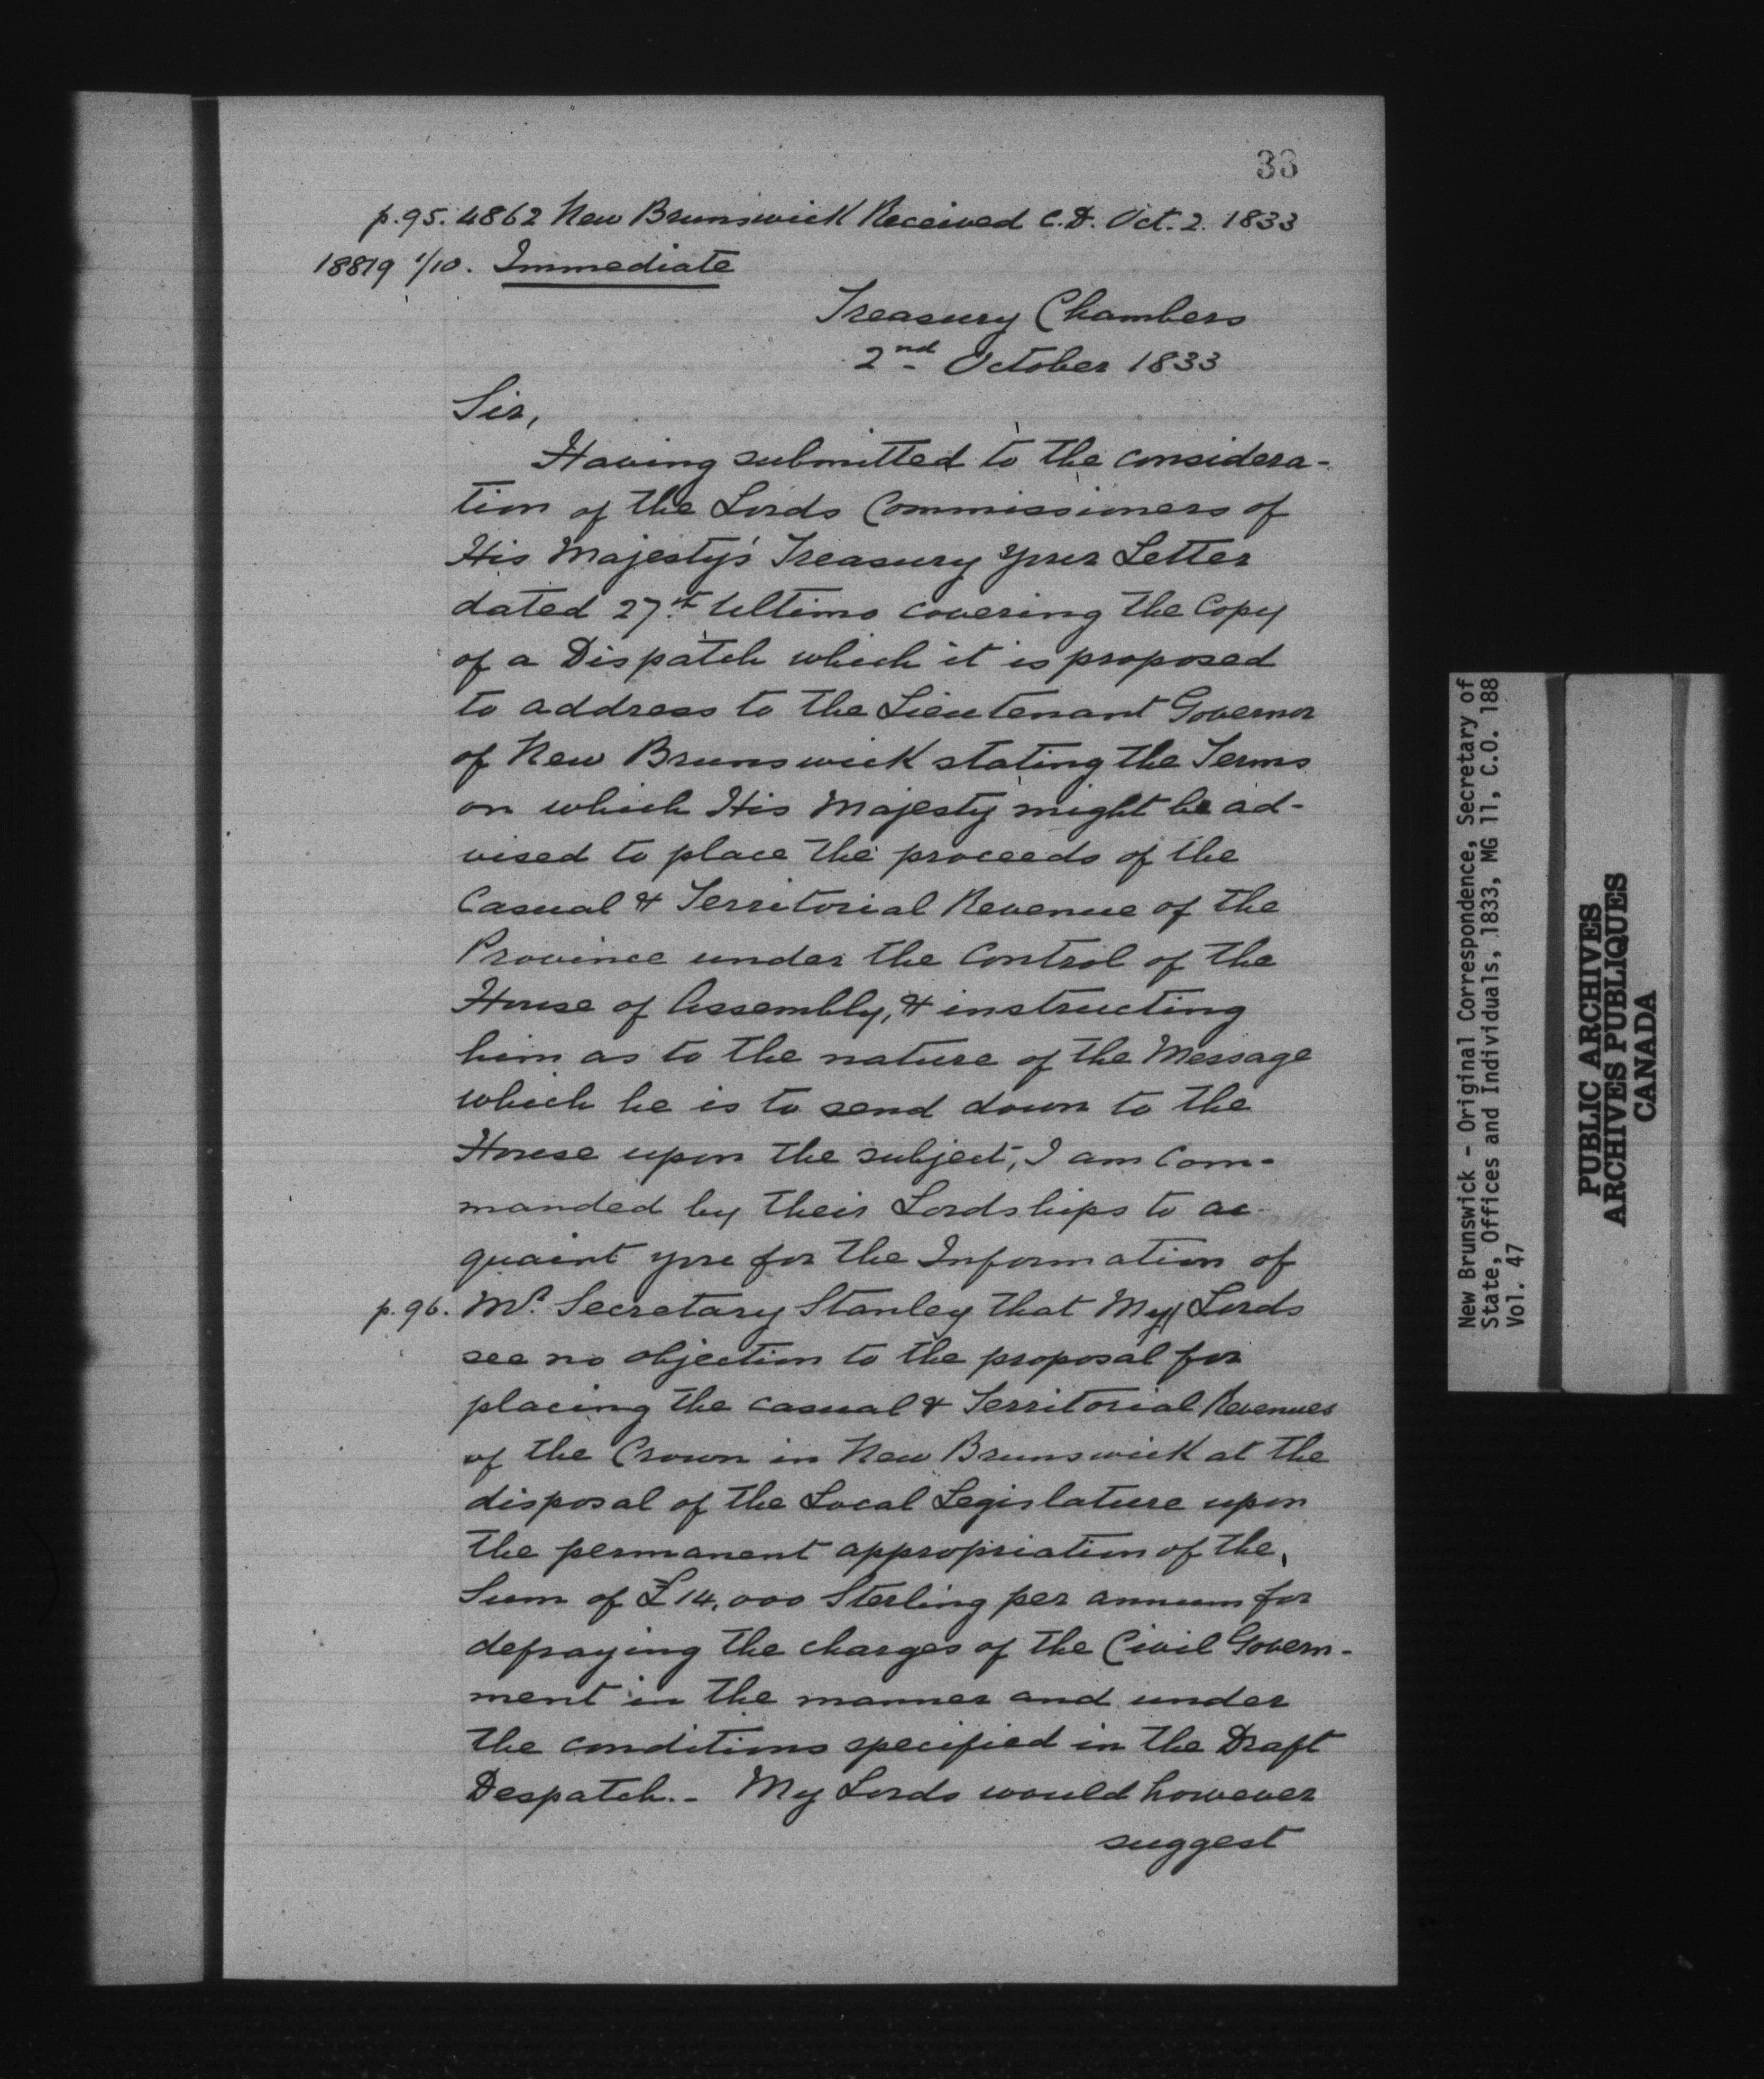 33
p.95. 4862 New Brunswick Received C.D. Oct. 2. 1833
18819 1/10. Immediate
Treasury Chambers
2nd October 1833
Sir,
Having submitted to the considera-
tion of the Lords Commissioners of
His Majesty's Treasury your Letter
dated 27th Ultimo covering the Copy
of a Dispatch which it is proposed
to address to the Lieutenant Governor
of New Brunswick stating the Terms
on which His Majesty might be ad-
vised to place the proceeds of the
Casual & Territorial Revenue of the
Province under the Control of the
House of Assembly, & instructing
him as to the nature of the Message
which he is to send down to the
House upon the subject, I am Com-
manded by their Lordships to ac-
quaint you for the Information of
p. 96. Mr. Secretary Stanley that My Lords
see no objection to the proposal for
placing the casual & Territorial Revenues
of the Crown in New Brunswick at the
disposal of the Local Legislature upon
the permanent appropriation of the
Sum of £14,000 Sterling per annum for
defraying the charges of the Civil Govern-
ment in the manner and under
the conditions specified in the Draft
Despatch.- My Lords would however
suggest
New Brunswick - Original Correspondence, Secretary of
State, Offices and Individuals, 1833, MG 11, C.O. 188
Vol. 47
PUBLIC ARCHIVES
ARCHIVES PUBLIQUES
CANADA